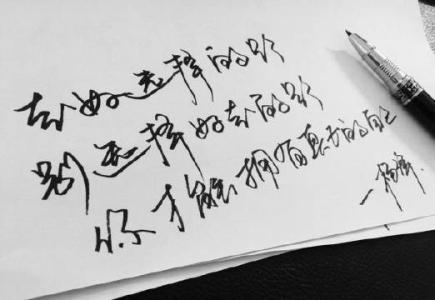 走好选择的路
别选择好走的路
你才能拥有真正的自己
—杨绛